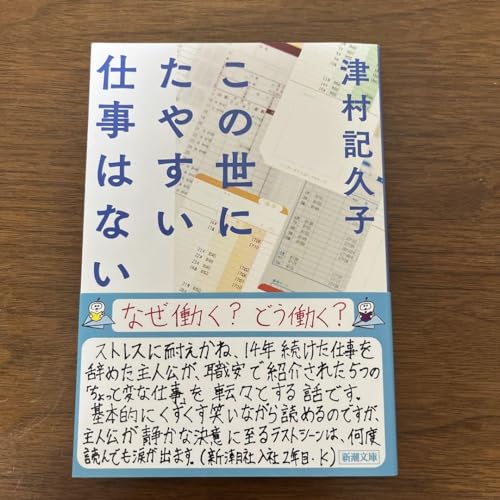 津村記久子
この世に
たやすい
仕事はない
なぜ働く？どう働く？
ストレスに耐えかね、14年続けた仕事を
辞めた主人公が、職安で紹介された5つの
「ちょっと変な仕事」を転々とする話です。
基本的にくすくす笑いながら読めるのですが、
主人公が静かな決意に至るラストシーンは、何度
読んでも涙が出ます。(新潮社入社2年目・K)
新潮文庫